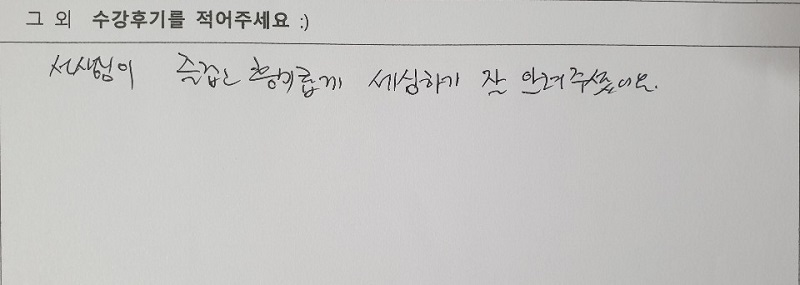 그 외 수강후기를 적어주세요 :)
선생님이 즐겁고 향기롭게 세심하게 잘 알려주셨어요.